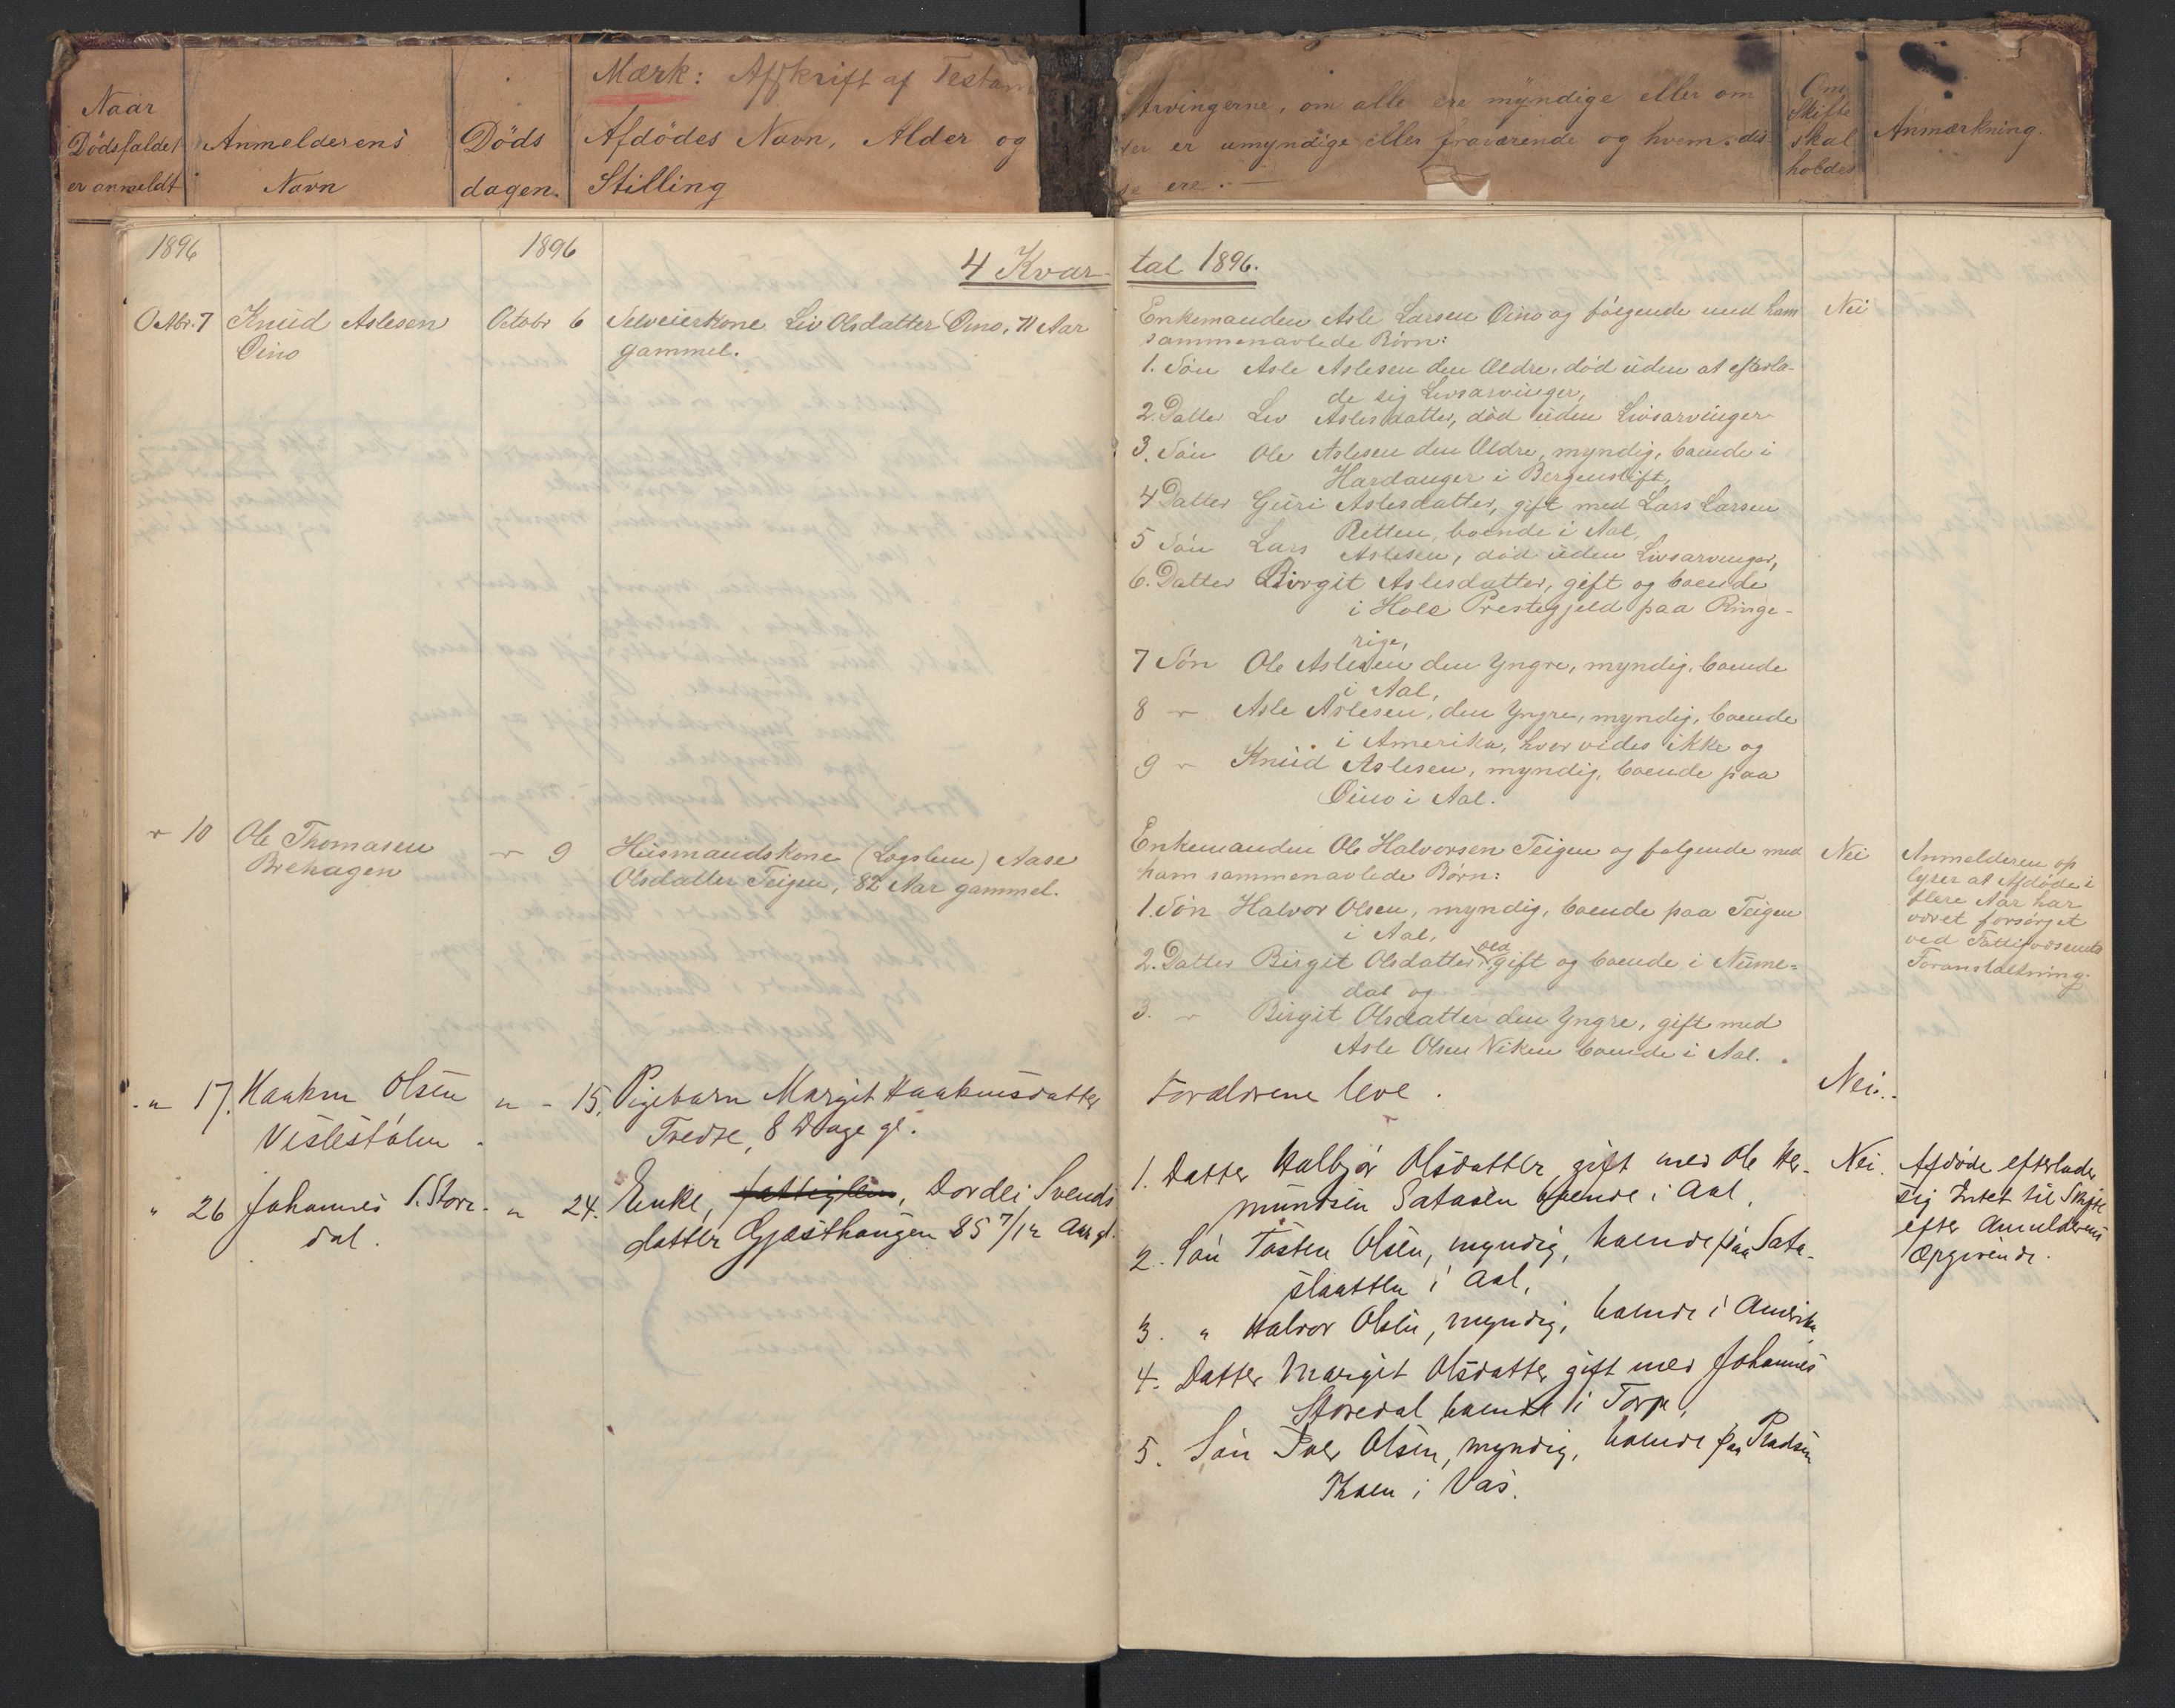 Mærk: Afskrift af Testam
Naar
Dödsfaldet
er anmeldt
Anmelderens
Navn
Döds
dagen.
Afdödes Navn, Alder og
Stilling
Arvingerne, om alle ere myndige eller om
er umyndige eller fraværende og hvem dis-
se ere. —
Om
Skifte
skal
holdes
Anmærkning.
1896
1896
4 Kvar-
tal 1896.
Octbr. 7
Knud Aslesen
Oino
Octobr 6
Selveierkone Liv Olsdatter Oino, 71 Aar
gammel.
Enkemanden Asle Larsen Oino og følgende med ham
sammenavlede Børn:
1. Søn Asle Aslesen den Ældre, død uden at efterla-
de sig Livsarvinger,
2. Datter Liv Aslesdatter, død uden Livsarvinger
3. Søn Ole Aslesen den Ældre, myndig, boende i
Hardanger i Bergenstift,
4 Datter Guri Aslesdatter, gift med Lars Larsen
Retten, boende i Aal,
5 Søn Lars Aslesen, død uden Livsarvinger,
6. Datter Birgit Aslesdatter, gift og boende
i Hole Prestegjeld paa Ringe-
rige,
7 Søn Ole Aslesen den Yngre, myndig, boende
i Aal,
8 " Asle Aslesen, den Yngre, myndig, boende
i Amerika, hvor vides ikke og
9 " Knud Aslesen, myndig, boende paa
Oino i Aal.
Nei
" 10
Ole Thomasen
Brehagen
" 9
Husmandskone (Lægslem) Aase
Olsdatter Teigen, 82 Aar gammel.
Enkemanden Ole Halvorsen Teigen og følgende med
ham sammenavlede Børn:
1. Søn Halvor Olsen, myndig, boende paa Teigen
i Aal,
2. Datter Birgit Olsdatter æld. gift og boende i Nume-
dal og
3. " Birgit Olsdatter den Yngre, gift med
Asle Olsen Viken boende i Aal.
Nei
Anmelderen op
lyser at Afdøde i
flere Aar har
været forsørget
ved Fattigvæsenets
Foranstaltning.
" 17.
Haakon Olsen
Veslestølen.
" - 15.
Pigebarn Margit Haakonsdatter
Tredse, 8 Dage gl.
Forældrene leve.
Nei.
" 26
Johannes S. Store-
dal.
" 24.
Enke, fattiglem, Dordei Svends
datter Gjæsthaugen 85 7/12 Aar gl.
1. Datter Halbjør Olsdatter gift med Ole Her-
mundsen Sataøen boende i Aal,
2. Søn Tosten Olsen, myndig, boende paa Sata-
slaatten i Aal,
3. " Halvor Olsen, myndig, boende i Amerika
4. Datter Margit Olsdatter gift med Johannes
Storedal boende i Torpe,
5. Søn Iver Olsen, myndig, boende paa Pladsen
i Vas.
Nei.
Afdøde efterlader
sig Intet til Skifte
efter Anmelderens
Opgivende.